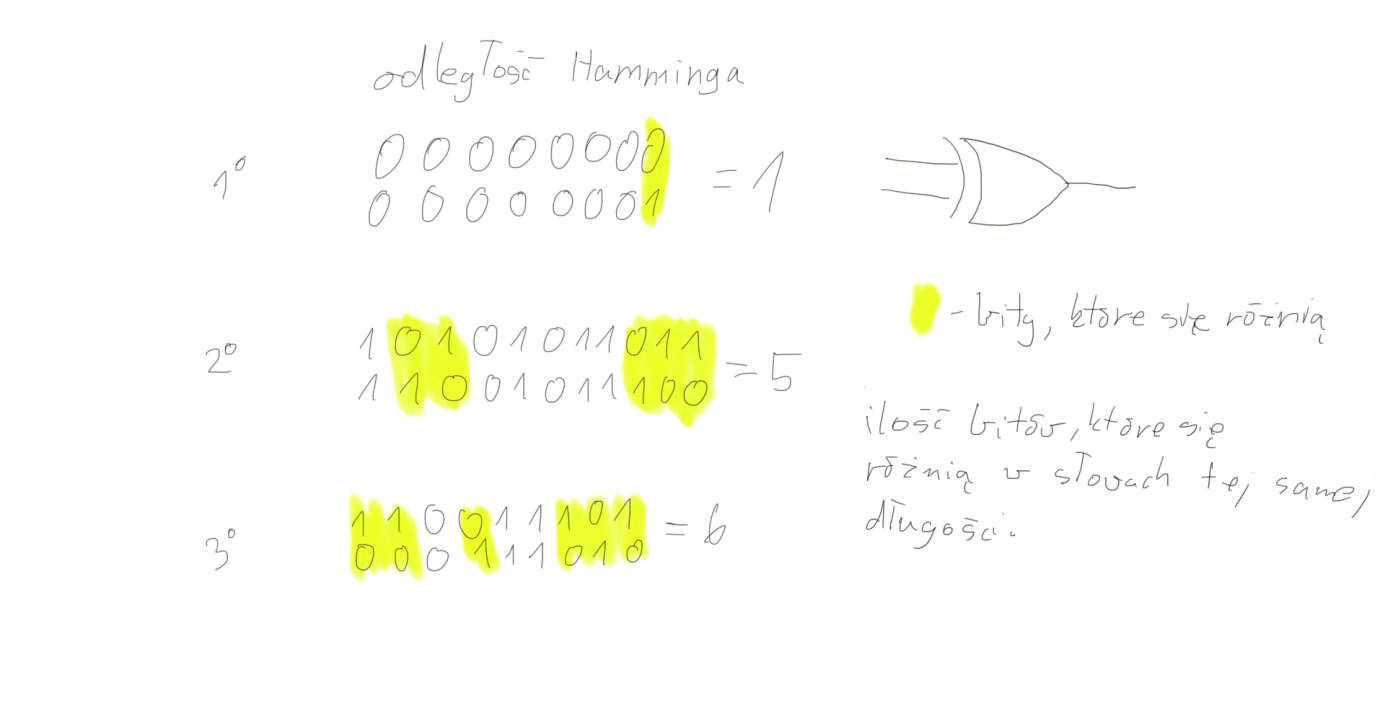 odległość Hamminga
1° 0 0 0 0 0 0 0 0
0 0 0 0 0 0 0 1 = 1
2° 1 0 1 0 1 0 1 1 0 1 1
1 1 0 0 1 0 1 1 1 0 0 = 5
3° 1 1 0 0 1 1 1 0 1
0 0 0 1 1 1 0 1 0 = 6
- bity, które się różnią
ilość bitów, które się
różnią w słowach tej samej
długości.